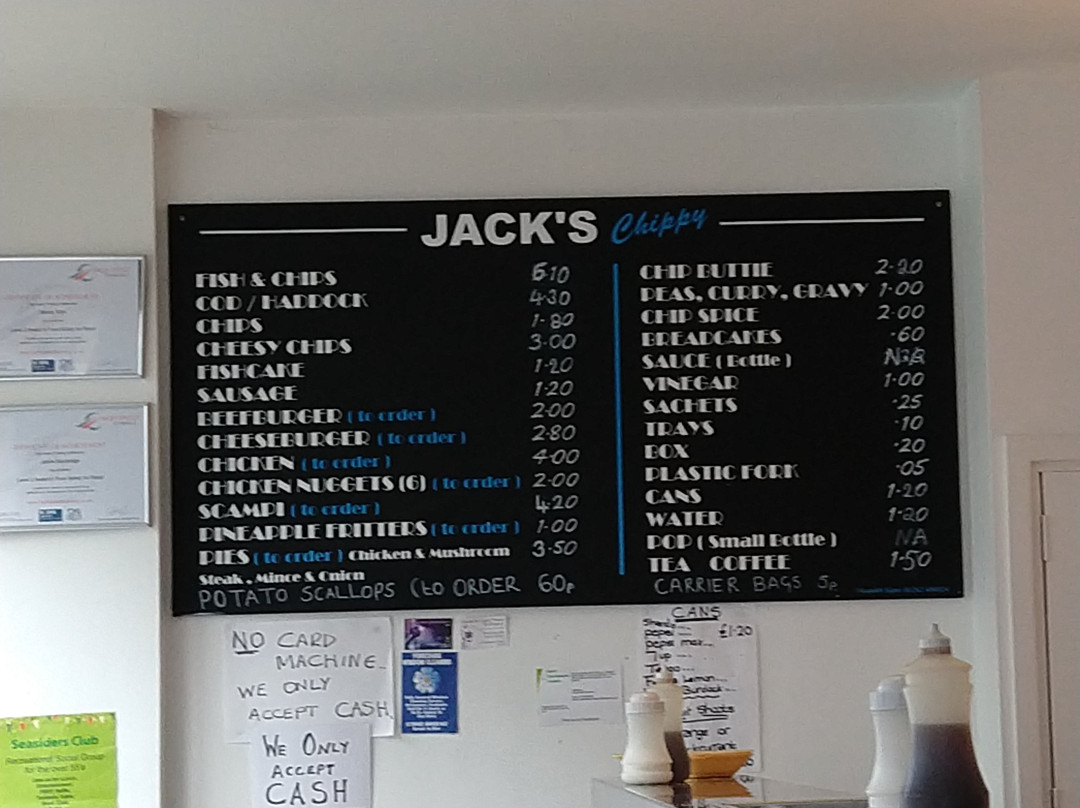 JACK'S Chippy
FISH & CHIPS 6·10
COD / HADDOCK 4·30
CHIPS 1·80
CHEESY CHIPS 3·00
FISHCAKE 1·20
SAUSAGE 1·20
BEEFBURGER ( to order ) 2·00
CHEESEBURGER ( to order ) 2·80
CHICKEN ( to order ) 4·00
CHICKEN NUGGETS (6) ( to order ) 2·00
SCAMPI ( to order ) 4·20
PINEAPPLE FRITTERS ( to order ) 1·00
PIES ( to order ) Chicken & Mushroom 3·50
Steak , Mince & Onion
POTATO SCALLOPS (to ORDER 60p
CHIP BUTTIE 2·20
PEAS, CURRY, GRAVY 1·00
CHIP SPICE 2·00
BREADCAKES ·60
SAUCE ( Bottle )
VINEGAR 1·00
SACHETS ·25
TRAYS ·10
BOX ·20
PLASTIC FORK ·05
CANS 1·20
WATER 1·20
POP ( Small Bottle ) NA
TEA COFFEE 1·50
CARRIER BAGS 5p
NO CARD
MACHINE
WE ONLY
ACCEPT CASH
WE ONLY
ACCEPT
CASH
CANS
£1·20
pepsi
pepsi max
7up
Tango
Lemon
Burdock
Shots
Seasiders Club
Recreational Social Group
for the over 55's